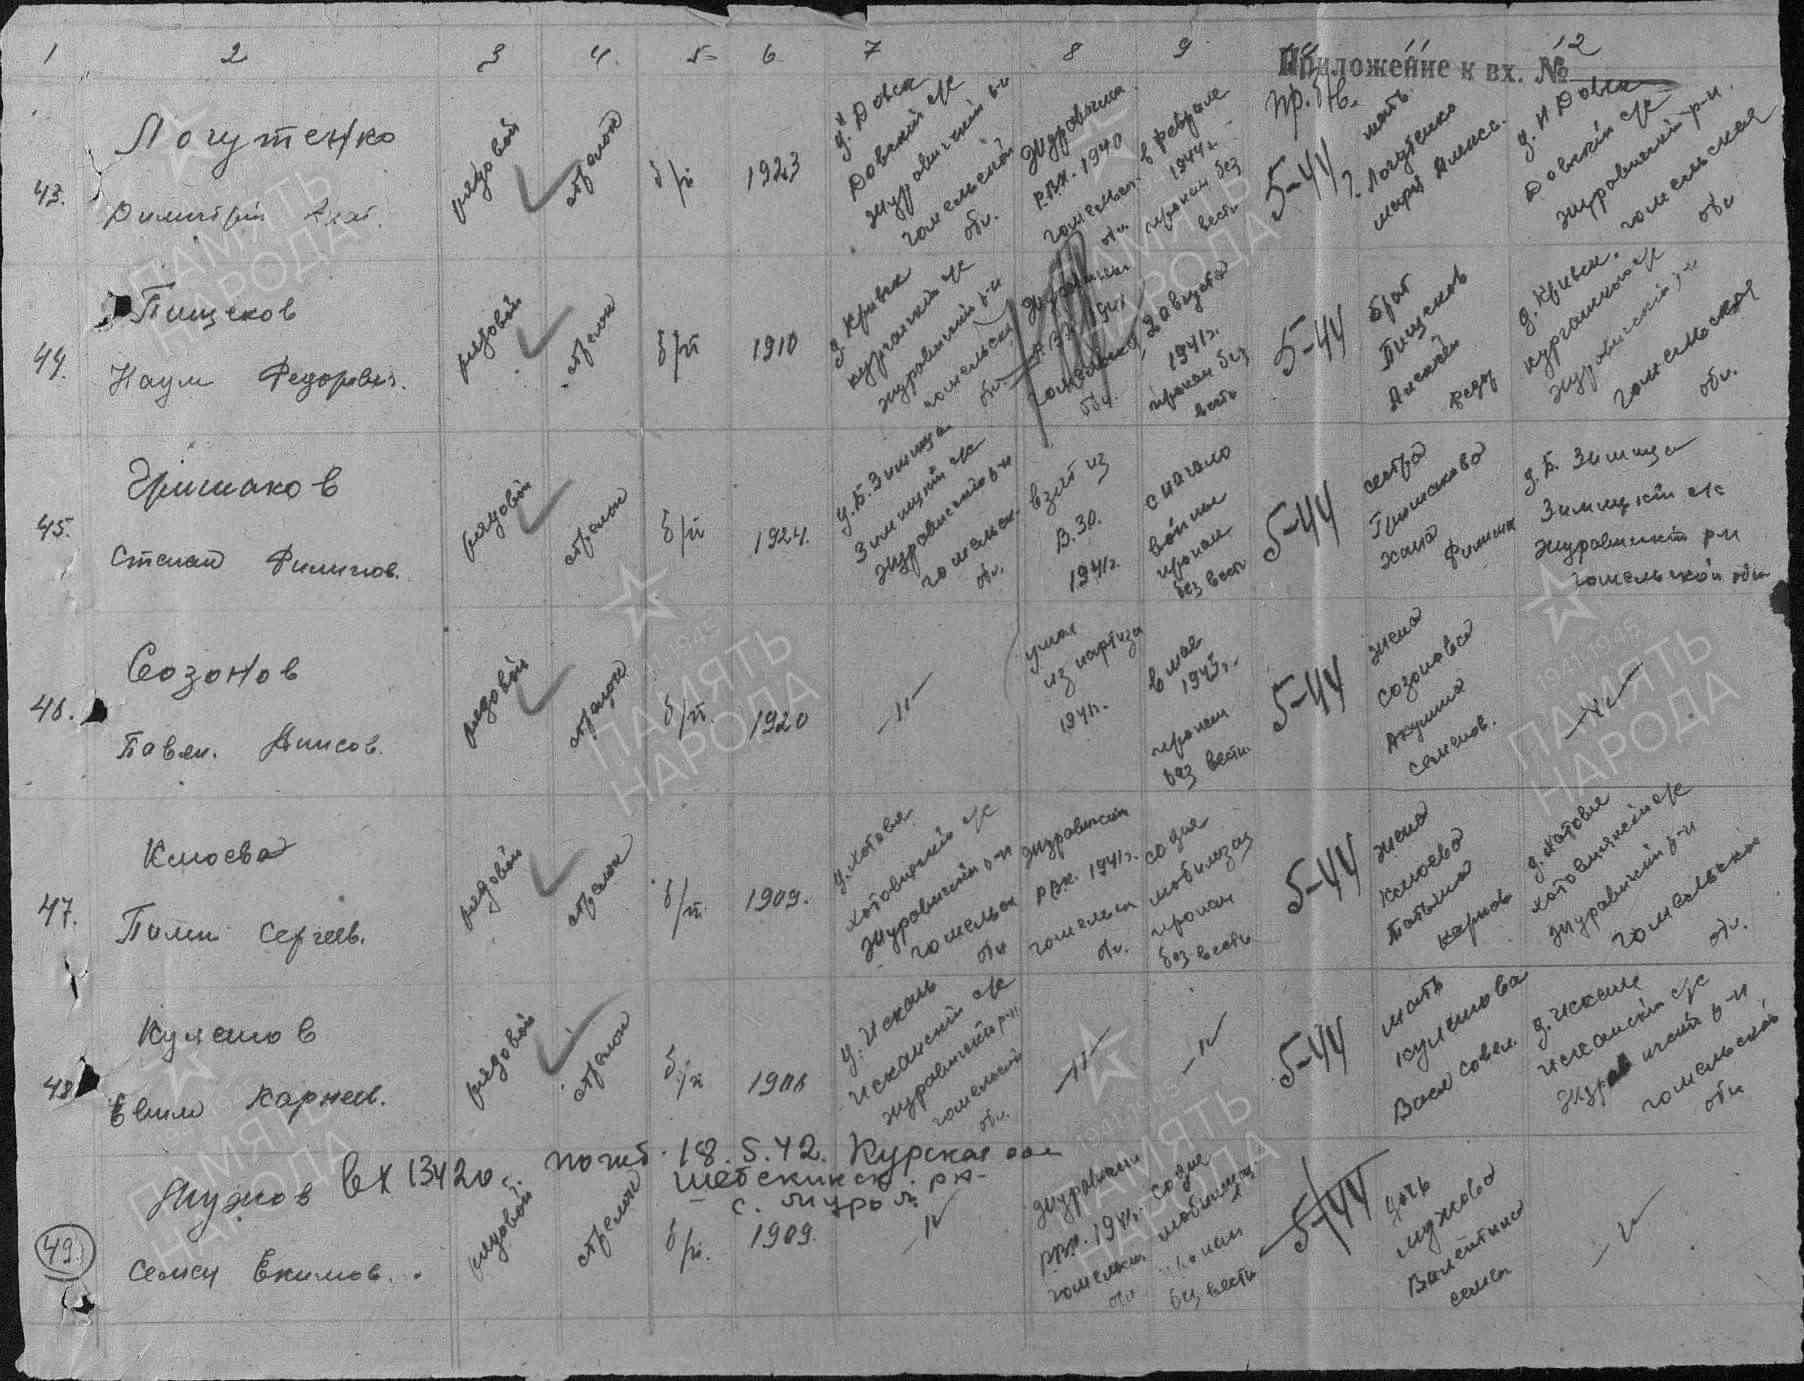 1 2 3 4. 5 6. 7 8 9 12
Приложение к вх. №
43.
Логутенко
Димитрий
рядовой
стрелок
б/п
1923
д. Н Довск
Довский с/с
Журавичский р-н
гомельской
обл.
Журавичи
РВК. 1940
гомельск.
обл.
в феврале
1944г.
пропал без
вести
пр. б/н.
5-44
мать
Логутенко
д. Н Довск
Довский с/с
Журавичский р-н.
гомельская
обл
44.
Пищеков
Наум Федоров.
рядовой
стрелок
б/п
1910
д. Кривск
курганский с/с
Журавичский р-н
гомельск
обл.
гомельской
обл.
2 августа
1941г.
пропал без
вести
5-44
брат
Пищеков
д. Кривск.
гомельская
обл.
45.
Гришаков
Степан Филипов.
рядовой
стрелок
б/п
1924.
д. Б. Зимница
Зимницкий с/с
Журавичский р-н
гомельск.
обл.
взят из
1941г.
с начало
войны
пропал
без вести
5-44
сестра
д. Б. Зимница
Зимницкий с/с
Журавичский р-н
гомельской обл
46.
Созонов
Павел. Анисов.
рядовой
стрелок
б/п
1920
-//-
ушел
из партиза
1941г.
в мае
1945г.
пропал
без вести
5-44
жена
Созонова
Акулина
семенов.
-//-
47.
Клюева
Пимен Сергеев.
рядовой
стрелок
б/п.
1909.
д. Хотовля
хотовлянский с/с
Журавичский р-н
гомельск
обл
Журавичский
РВК. 1941г.
гомельск
обл.
со дня
мобилизац
пропал
без вести
5-44
жена
Клюева
Татьяна
карпов
д. Хотовля
хотовлянский с/с
Журавичский р-н
гомельской
обл.
48.
Кулешов
Евтим Карнеев.
рядовой
стрелок
б/п
д. Искань
Исканский с/с
Журавичский р-н
гомельской
обл.
-//-
-//-
5-44
мать
Кулешова
д. Искань
Исканский с/с
Журавичский р-н
гомельской
обл
вх 13420. погиб. 18.5.42. Курская обл
Шебекинск. р-н-
с. Муром.
49.
Мужов
Семен Екимов.
рядовой
стрелок
б/п.
1909.
-//-
Журавичский
РВК. 1941г.
гомельск
обл
со дня
мобилизац.
пропал
без вести
5-44
дочь
Мужова
Валентина
семен
-//-
1941-1945
ПАМЯТЬ
НАРОДА